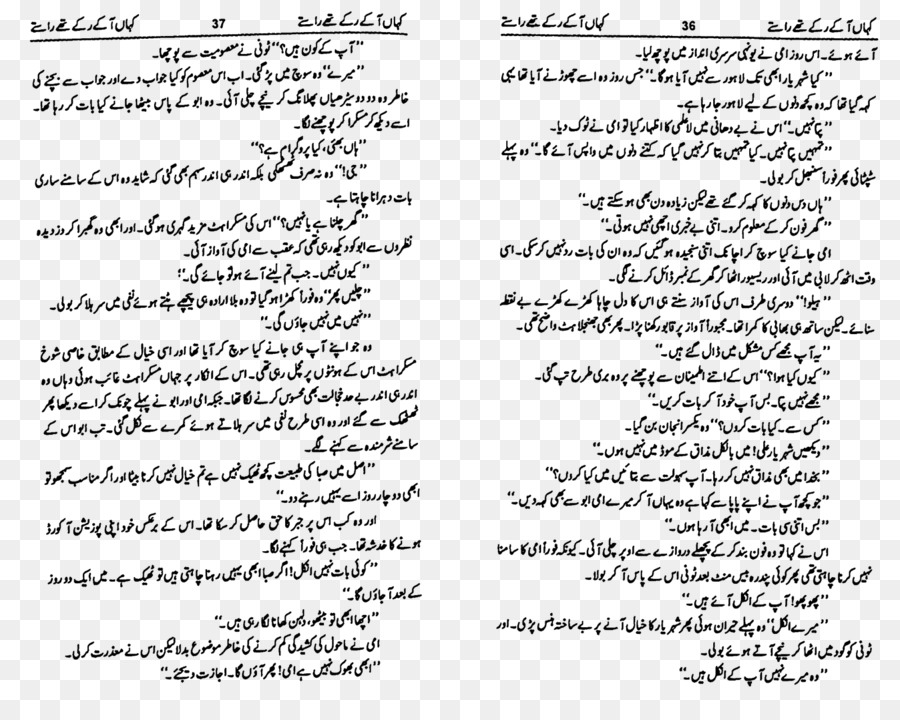 کہاں آ کے رکے تھے راستے 36 کہاں آ کے رکے تھے راستے
آئے ہوئے۔ اس روز امی نے یونہی سرسری انداز میں پوچھ لیا۔
’’کیا شہریار ابھی تک لاہور سے نہیں آیا ہوگا۔‘‘ جس روز وہ اسے چھوڑنے آیا تھا یہی
کہہ گیا تھا کہ وہ کچھ دنوں کے لیے لاہور جا رہا ہے۔
’’پتا نہیں۔‘‘ اس نے بے دھیانی میں لاعلمی کا اظہار کیا تو امی نے ٹوک دیا۔
’’تمہیں پتا نہیں۔ کیا تمہیں بتا کر نہیں گیا کہ کتنے دنوں میں واپس آئے گا۔‘‘ وہ پہلے
سٹپٹائی پھر فوراً سنبھل کر بولی۔
’’ہاں دس دنوں کا کہہ کر گئے تھے لیکن زیادہ دن بھی ہو سکتے ہیں۔‘‘
’’گھر فون کر کے معلوم کرو۔ اتنی بے خبری اچھی نہیں ہوتی۔‘‘
امی جانے کیا سوچ کر اچانک اتنی سنجیدہ ہو گئیں کہ وہ ان کی بات رد نہیں کر سکی۔ اسی
وقت اٹھ کر لابی میں آئی اور ریسیور اٹھا کر گھر کے نمبر ڈائل کرنے لگی۔
’’ہیلو!‘‘ دوسری طرف اس کی آواز سنتے ہی اس کا دل چاہا کھڑے کھڑے بے نقطہ
سنائے۔ لیکن ساتھ ہی بھابی کا کمرا تھا۔ مجبوراً آواز پر قابو رکھنا پڑا۔ پھر بھی جھنجلاہٹ واضح تھی۔
’’یہ آپ مجھے کس مشکل میں ڈال گئے ہیں۔‘‘
’’کیوں کیا ہوا؟‘‘ اس کے اتنے اطمینان سے پوچھنے پر وہ بری طرح تپ گئی۔
’’مجھے نہیں پتا۔ بس آپ خود آ کر بات کریں۔‘‘
’’کس سے۔ کیا بات کروں؟‘‘ وہ یکسر انجان بن گیا۔
’’دیکھیں شہریار علی! میں بالکل مذاق کے موڈ میں نہیں ہوں۔‘‘
’’بخدا میں بھی مذاق نہیں کر رہا۔ آپ سہولت سے بتائیں میں کیا کروں؟‘‘
’’جو کچھ آپ نے اپنے پاپا سے کہا ہے وہ یہاں آ کر میرے امی ابو سے بھی کہہ دیں۔‘‘
’’بس اتنی سی بات۔ میں ابھی آ رہا ہوں۔‘‘
اس نے کہا تو وہ فون بند کر کے پچھلے دروازے سے اوپر چلی آئی۔ کیونکہ فوراً امی کا سامنا
نہیں کرنا چاہتی تھی پھر کوئی پندرہ بیس منٹ بعد ٹونی اس کے پاس آ کر بولا۔
’’پھوپھو! آپ کے انکل آئے ہیں۔‘‘
’’میرے انکل‘‘ وہ پہلے حیران ہوئی پھر شہریار کا خیال آنے پر بے ساختہ ہنس پڑی۔ اور
ٹونی کو گود میں اٹھا کر نیچے آتے ہوئے بولی۔
’’وہ میرے نہیں آپ کے انکل ہیں۔‘‘
کہاں آ کے رکے تھے راستے 37 کہاں آ کے رکے تھے راستے
’’آپ کے کون ہیں؟‘‘ ٹونی نے معصومیت سے پوچھا۔
’’میرے‘‘ وہ سوچ میں پڑ گئی۔ اب اس معصوم کو کیا جواب دے اور جواب سے بچنے کی
خاطر وہ دو دو سیڑھیاں پھلانگ کر نیچے چلی آئی۔ وہ ابو کے پاس بیٹھا جانے کیا بات کر رہا تھا۔
اسے دیکھ کر مسکرا کر پوچھنے لگا۔
’’ہاں بھئی، کیا پروگرام ہے؟‘‘
’’جی!‘‘ وہ نہ صرف ٹھٹھکی بلکہ اندر ہی اندر سہم بھی گئی کہ شاید وہ اس کے سامنے ساری
بات دہرانا چاہتا ہے۔
’’گھر چلنا ہے یا نہیں؟‘‘ اس کی مسکراہٹ مزید گہری ہو گئی۔ اور ابھی وہ گھبرا کر دزدیدہ
نظروں سے ابو کو دیکھ رہی تھی کہ عقب سے امی کی آواز آئی۔
’’کیوں نہیں۔ جب تم لینے آئے ہو تو جائے گی۔‘‘
’’چلیں پھر‘‘ وہ فوراً کھڑا ہو گیا تو وہ بلا ارادہ ہی پیچھے ہٹتے ہوئے نفی میں سر ہلا کر بولی۔
’’نہیں میں نہیں جاؤں گی۔‘‘
وہ جو اپنے آپ ہی جانے کیا سوچ کر آیا تھا اور اسی خیال کے مطابق خاصی شوخ
مسکراہٹ اس کے ہونٹوں پر مچل رہی تھی۔ اس کے انکار پر جہاں مسکراہٹ غائب ہوئی وہاں وہ
اندر ہی اندر بے حد خجالت بھی محسوس کرنے لگا تھا۔ جبکہ امی اور ابو نے پہلے چونک کر اسے دیکھا پھر
ٹھٹھک سے گئے اور وہ اسی طرح نفی میں سر ہلاتے ہوئے کمرے سے نکل گئی۔ تب ابو اس کے
سامنے شرمندہ سے کہنے لگے۔
’’اصل میں صبا کی طبیعت کچھ ٹھیک نہیں ہے تم خیال نہیں کرنا بیٹا اور اگر مناسب سمجھو تو
ابھی دو چار روز اسے یہیں رہنے دو۔‘‘
اور وہ کب اس پر جبر کا حق حاصل کر سکا تھا۔ اس کے برعکس خود اپنی پوزیشن آکورڈ
ہونے کا خدشہ تھا۔ جب ہی فوراً کہنے لگا۔
’’کوئی بات نہیں انکل! اگر صبا ابھی یہیں رہنا چاہتی ہیں تو ٹھیک ہے۔ میں ایک دو روز
کے بعد آ جاؤں گا۔‘‘
’’اچھا ابھی تو بیٹھو، دلہن کھانا لگا رہی ہیں۔‘‘
امی نے ماحول کی کشیدگی کم کرنے کی خاطر موضوع بدلا لیکن اس نے معذرت کر لی۔
’’ابھی بھوک نہیں ہے امی! پھر آؤں گا۔ اجازت دیجئے۔‘‘